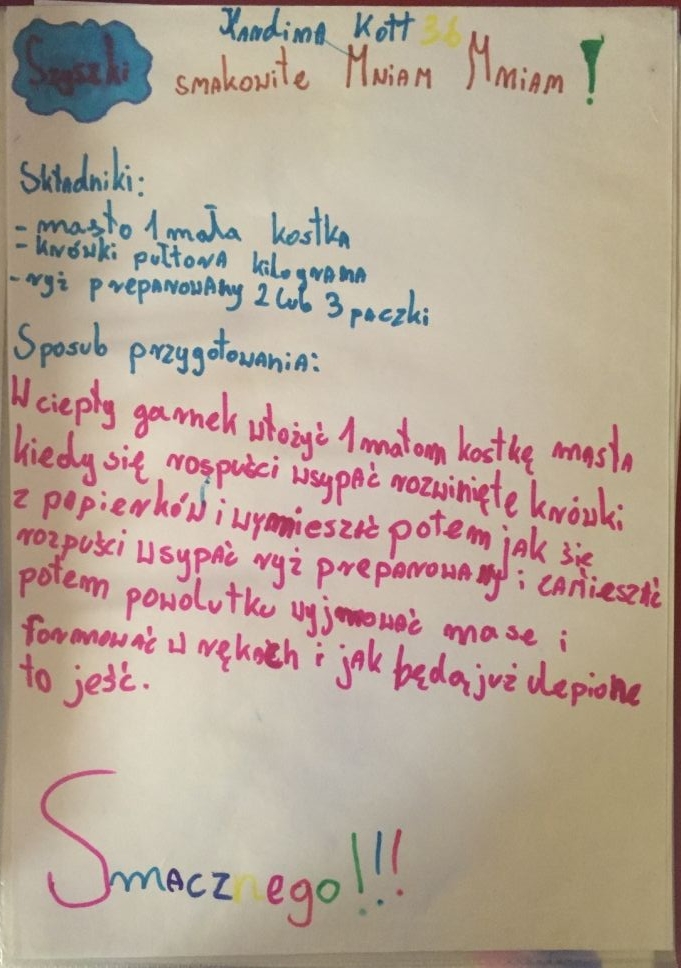 Kott 3b
Szyszki
smakowite Mniam Mniam!
Składniki:
- masło 1 mała kostka
- krówki pułtora kilograma
- ryż preparowany 2 lub 3 paczki
Sposub przygotowania:
W ciepły garnek włożyć 1 małom kostkę masła
kiedy się rospuści wsypać rozwinięte krówki
z papierków i wymieszać potem jak się
rozpuści wsypać ryż preparowany i zamieszać
potem powolutku wyjmować mase i
formować w rękach i jak będą już ulepione
to jeść.
Smacznego!!!